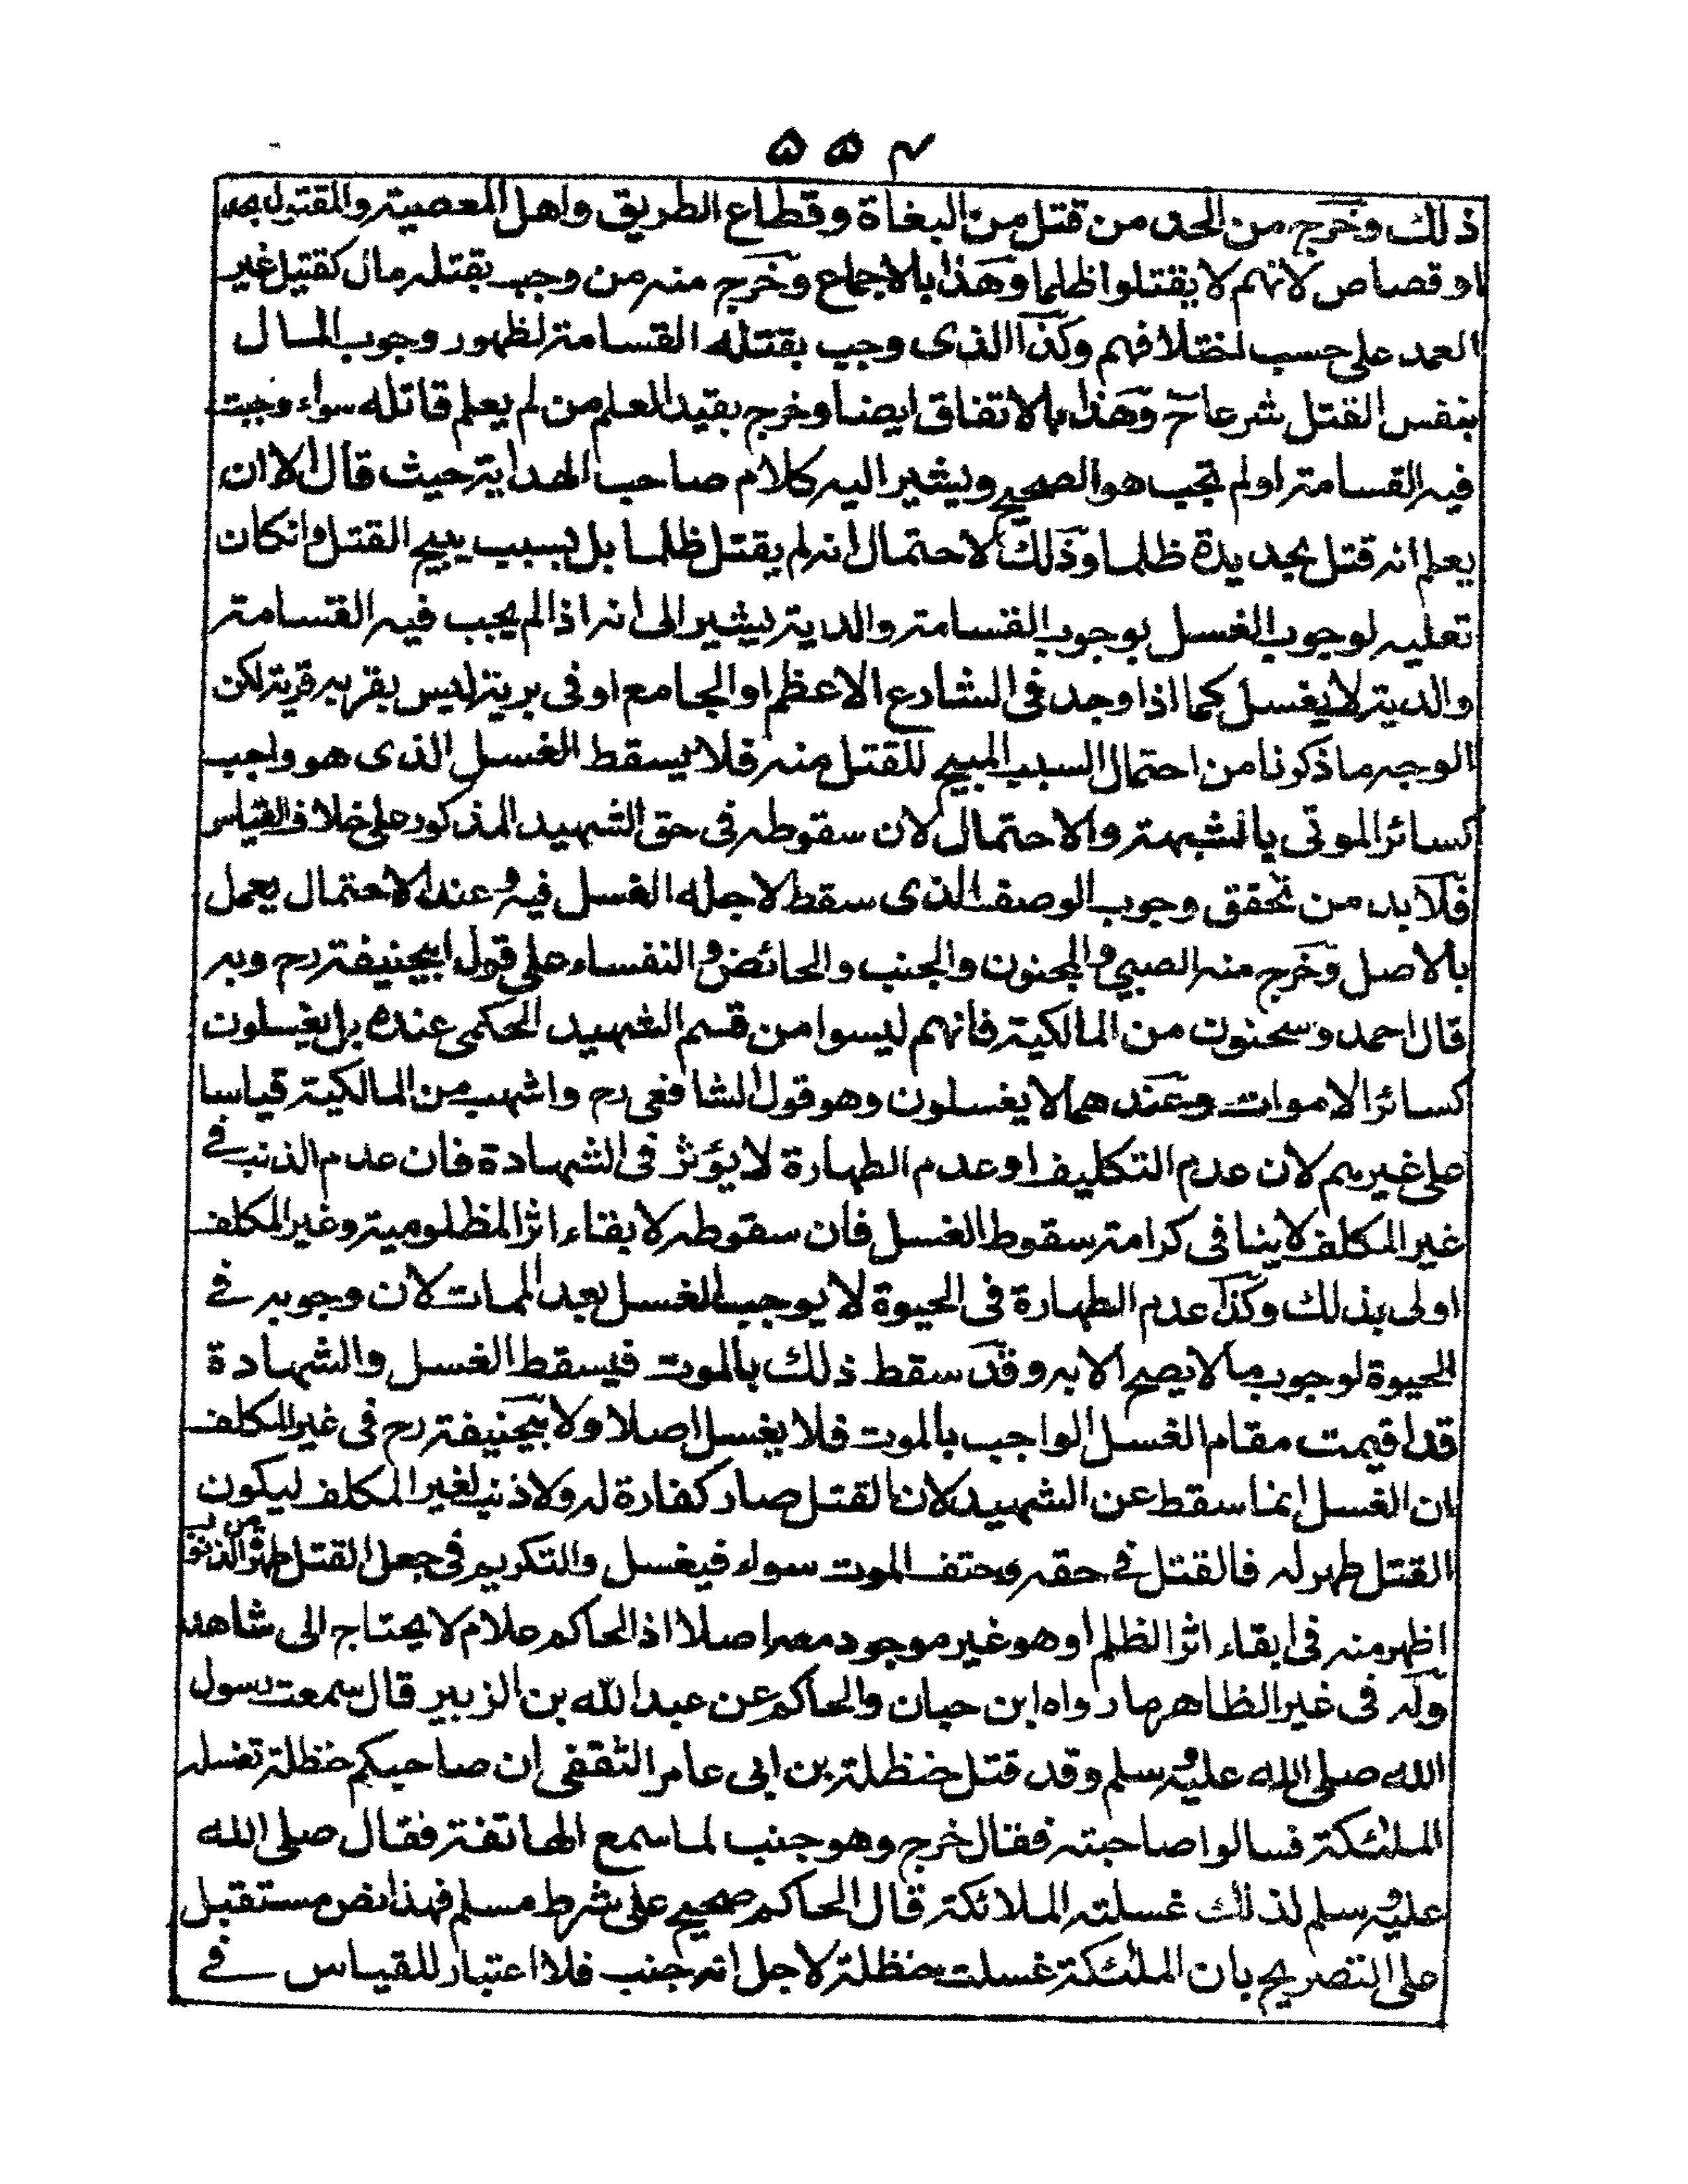 ۵۵۴
ذلك وخرج من الحد من قتل من البغاة وقطاع الطريق واهل المعصية والمقتول بحد
او قصاص لانهم لا يقتلوا ظلما وهذا بالاجماع وخرج منه من وجب بقتله مال كقتيل غير
العمد على حسب اختلافهم وكذا الذى وجب بقتله القسامة لظهور وجوب المال
بنفس القتل شرعا ح وهذا بالاتفاق ايضا وخرج بقيد العلم من لم يعلم قاتله سواء وجبت
فيه القسامة او لم تجب هو الصحيح ويشير اليه كلام صاحب الهداية حيث قال الا ان
يعلم انه قتل بحديدة ظلما وذلك لاحتمال انه لم يقتل ظلما بل بسبب يبيح القتل وانكان
تعليه لوجوب الغسل بوجوب القسامة والدية يشير الى انه اذا لم يجب فيه القسامة
والدية لا يغسل كما اذا وجد فى الشارع الاعظم او الجامع او فى برية ليس بقربه قرية لكن
الوجه ما ذكرنا من احتمال السبب المبيح للقتل منه فلا يسقط الغسل الذى هو واجب
كسائر الموتى بالشبهة والاحتمال لان سقوطه فى حق الشهيد المذكور على خلاف القياس
فلا بد من تحقق وجوب الوصف الذى سقط لاجله الغسل فيه وعند الاحتمال يعمل
بالاصل وخرج منه الصبي والمجنون والجنب والحائض والنفساء على قول ابيحنيفة رح وبه
قال احمد وسحنون من المالكية فانهم ليسوا من قسم الشهيد الحكمى عنده بل يغسلون
كسائر الاموات وعندهما لا يغسلون وهو قول الشافعى رح واشهب من المالكية قياسا
على غيرهم لان عدم التكليف او عدم الطهارة لا يؤثر فى الشهادة فان عدم الذنب فى
غير المكلف لا ينافى كرامة سقوط الغسل فان سقوطه لابقاء اثر المظلومية وغير المكلف
اولى بذلك وكذا عدم الطهارة فى الحيوة لا يوجب الغسل بعد الممات لان وجوبه فى
الحيوة لوجوب ما لا يصح الا به وقد سقط ذلك بالموت فيسقط الغسل والشهادة
قد اقيمت مقام الغسل الواجب بالموت فلا يغسل اصلا ولابيحنيفة رح فى غير المكلف
ان الغسل انما سقط عن الشهيد لان القتل صار كفارة له ولا ذنب لغير المكلف ليكون
القتل طهر له فالقتل فى حقه وحتف الموت سواء فيغسل والتكريم فى جعل القتل طهر من الذنوب
اظهر منه فى ابقاء اثر الظلم او هو غير موجود معه اصلا اذ الحاكم علام لا يحتاج الى شاهد
وله فى غير الظاهر ما رواه ابن حبان والحاكم عن عبد الله بن الزبير قال سمعت رسول
الله صلى الله عليه وسلم وقد قتل حنظلة بن ابى عامر الثقفى ان صاحبكم حنظلة تغسله
الملئكة فسالوا صاحبته فقال خرج وهو جنب لما سمع الهاتفة فقال صلى الله
عليه وسلم لذلك غسلته الملائكة قال الحاكم صحيح على شرط مسلم فهذا نص مستقبل
على التصريح بان الملئكة غسلت حنظلة لاجل انه جنب فلا اعتبار للقياس فى